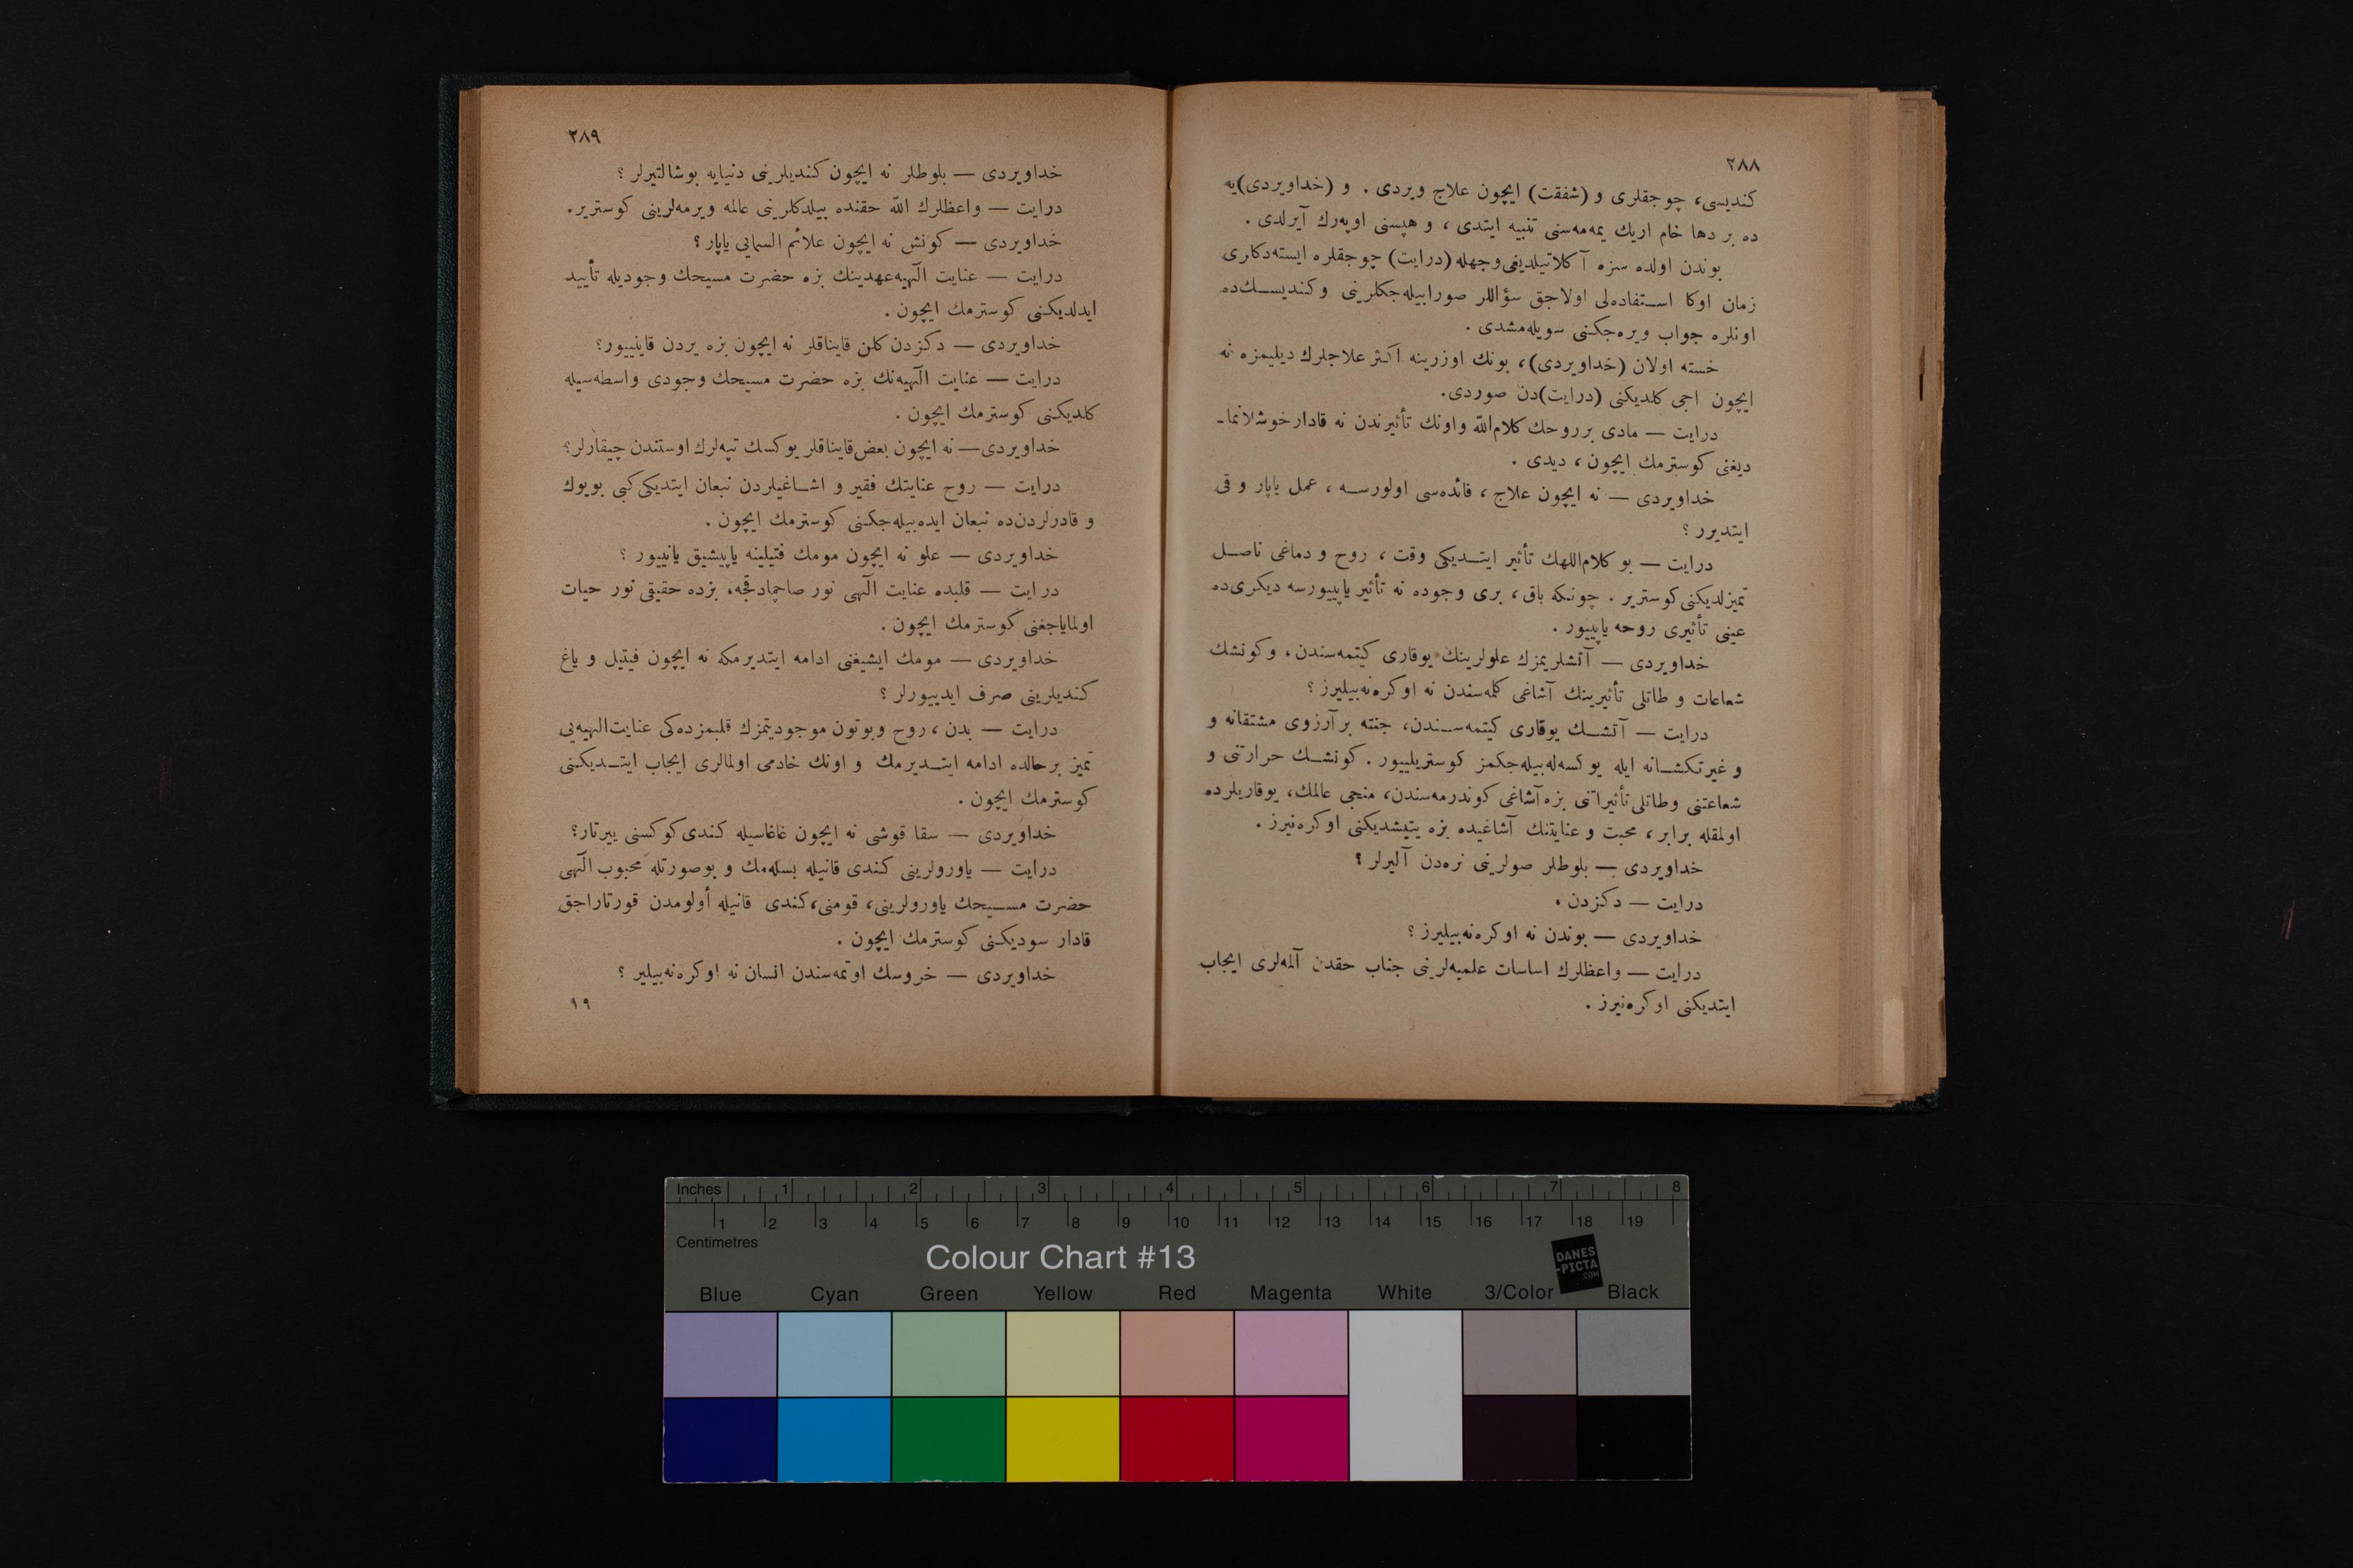 ٢٨٨
كنديسى، چوجقلرى و (شفقت) ايچون علاج ويردى . و (خداويردى)يه
ده بر دها خام اريك يمه‌مه‌سنى تنبيه ايتدى ، و هپسنى اوپه‌رك آيرلدى .
بوندن اولده سزه آكلاتيلديغى وجهله (درايت) چوجقلره ايسته‌دكارى
زمان اوكا استفاده‌لى اولاجق سؤاللر صورابيله‌جكلرينى وكنديسنك‌ده
اونلره جواب ويره‌جكنى سويله‌مشدى .
خسته اولان (خداويردى)، بونك اوزرينه اكثر علاجلرك ديليمزه نه
ايچون اجى كلديكنى (درايت)دن صوردى.
درايت — مادى بر روحك كلام‌الله واونك تأثيرندن نه قادار خوشلانما-
ديغنى كوسترمك ايچون ، ديدى .
خداويردى — نه ايچون علاج ، فائده‌سى اولورسه ، عمل ياپار و قى
ايتديرر ؟
درايت — بو كلام‌اللهك تأثير ايتديكى وقت ، روح و دماغى ناصل
تميزلديكنى كوسترير . چونكه باق ، برى وجوده نه تأثير ياپييورسه ديكرى‌ده
عينى تأثيرى روحه ياپييور .
خداويردى — آتشلريمزك علولرينك يوقارى كيتمه‌سندن ، وكونشك
شعاعات و طاتلى تأثيرينك آشاغى كلمه‌سندن نه اوكره‌نه‌بيليرز ؟
درايت — آتشك يوقارى كيتمه‌سندن، جنته بر آرزوى مشتقانه و
و غيرتكشانه ايله يوكسه‌له‌بيله‌جكمز كوستريلييور . كونشك حرارتنى و
شعاعتنى وطاتلى تأثيراتنى بزه آشاغى كوندرمه‌سندن، منجى عالمك، يوقاريلرده
اولمقله برابر ، محبت و عنايتنك آشاغيده بزه يتيشديكنى اوكره‌نيرز .
خداويردى — بلوطلر صولرينى نره‌دن آليرلر ؟
درايت — دكزدن .
خداويردى — بوندن نه اوكره‌نه‌بيليرز ؟
درايت — واعظلرك اساسات علميه‌لرينى جناب حقدن آلمه‌لرى ايجاب
ايتديكنى اوكره‌نيرز .
٢٨٩
خداويردى — بلوطلر نه ايچون كنديلرينى دنيايه بوشالتيرلر ؟
درايت — واعظلرك الله حقنده بيلدكلرينى عالمه ويرمه‌لرينى كوسترير.
خداويردى — كونش نه ايچون علائم السمايى ياپار ؟
درايت — عنايت الٓهيه عهدينك بزه حضرت مسيحك وجوديله تأييد
ايدلديكنى كوسترمك ايچون .
خداويردى — دكزدن كلن قايناقلر نه ايچون بزه يردن قاينييور؟
درايت — عنايت الٓهيه‌نك بزه حضرت مسيحك وجودى واسطه‌سيله
كلديكنى كوسترمك ايچون .
خداويردى — نه ايچون بعض قايناقلر يوكسك تپه‌لرك اوستندن چيقارلر؟
درايت — روح عنايتك فقير و اشاغيلردن نبعان ايتديكى كبى بويوك
و قادرلردن‌ده نبعان ايده‌بيله‌جكنى كوسترمك ايچون .
خداويردى — علو نه ايچون مومك فتيلينه ياپيشيق يانييور ؟
درايت — قلبده عنايت الٓهى نور صاچمادقجه، بزده حقيقى نور حيات
اولماياجغنى كوسترمك ايچون .
خداويردى — مومك ايشيغنى ادامه ايتديرمكه نه ايچون فيتيل و ياغ
كنديلرينى صرف ايدييورلر ؟
درايت — بدن ، روح وبوتون موجوديتمزك قلبمزده‌كى عنايت‌الهيه‌يى
تميز بر حالده ادامه ايتديرمك و اونك خادمى اولمالرى ايجاب ايتديكنى
كوسترمك ايچون .
خداويردى — سقا قوشى نه ايچون غاغاسيله كندى كوكسنى ييرتار؟
درايت — ياورولرينى كندى قانيله بسله‌مك و بوصورتله محبوب الٓهى
حضرت مسيحك ياورولرينى، قومنى، كندى قانيله أولومدن قورتاراجق
قادار سوديكنى كوسترمك ايچون .
خداويردى — خروسك اوتمه‌سندن انسان نه اوكره‌نه‌بيلير ؟
١٩
Inches 1 2 3 4 5 6 7 8
1 2 3 4 5 6 7 8 9 10 11 12 13 14 15 16 17 18 19
Centimetres
Colour Chart #13
DANES
-PICTA
.COM
Blue Cyan Green Yellow Red Magenta White 3/Color Black